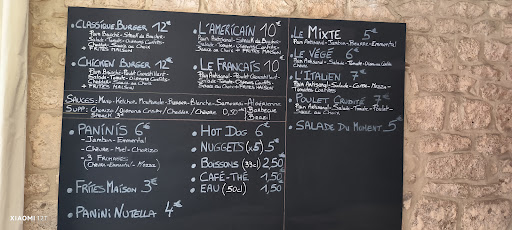 • Classique Burger 12€
Pain Buns
Salade - Tomate - Oignons Confits
Cheddar - Sauce au Choix
+ Frites Maison
• Chicken Burger 12€
Salade - Tomate - Oignons Confits
Cheddar - Sauce au Choix
+ Frites Maison
• L'Américain 10€
Salade - Tomate - Oignons Confits
Sauce au Choix
+ Frites Maison
• Le Français 10€
Pain Artisanal - Poulet
Salade - Tomate - Oignons Confits
Sauce au Choix
+ Frites Maison
Sauces: Mayo - Ketchup - Moutarde - Burger - Blanche - Samouraï - Algérienne
Supp: Chorizo / Oignons Crispy / Cheddar / Chèvre 0,50€
Steack 3€
Barbecue
Brazil
• Paninis 6€
- Jambon - Emmental
- Chèvre - Miel - Chorizo
- 3 Fromages
(Chèvre - Emmental - Mozza)
• Frites Maison 3€
• Panini Nutella 4€
• Hot Dog 6€
• Nuggets (x5) 5€
• Boissons (33cl) 2,50€
• Café-Thé 1,50€
• Eau (50cl) 1,50€
• Le Mixte 5€
Pain Artisanal - Jambon - Beurre - Emmental
• Le Végé 6€
Pain Artisanal - Salade - Tomate - Oignons Confits
Chèvre
• L'Italien 7€
Pain Artisanal - Salade - Coppa - Mozza -
Tomates Confites
• Poulet Crudité
Pain Artisanal - Salade - Tomate - Poulet -
Sauce au Choix
• Salade du Moment 5€
XIAOMI 12T